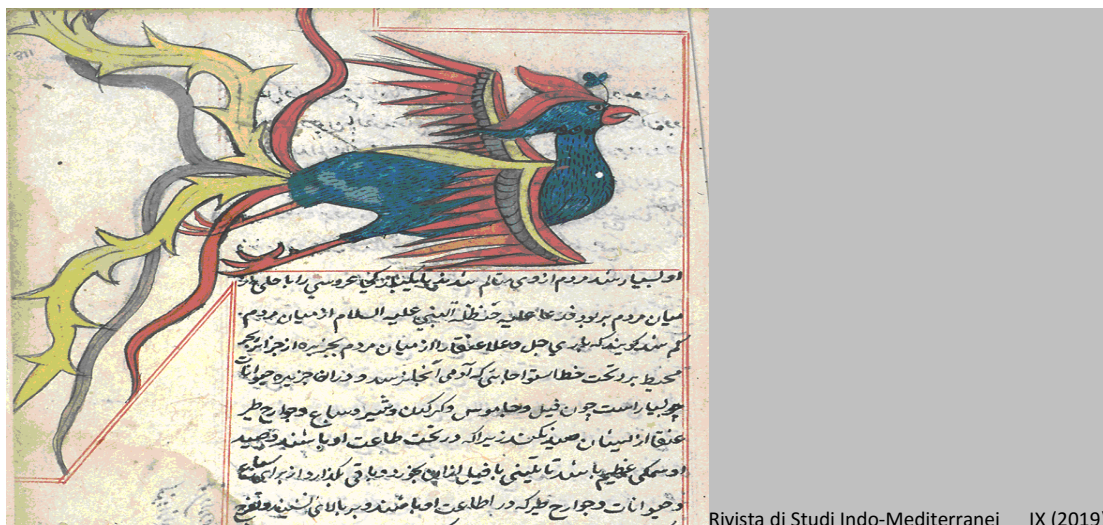 او بسیار شد مردم از وی متالم شدند عروسی را با حلی از
میان مردم بربود فدعا علیه حنظلة النبی علیه السلام از میان مردم
کم شد کویند که باری جل وعلا عنقا را از میان مردم بجزیره از جزایر بحر
محیط برد تحت خط استوا که آدمی آنجا نرسد و دران جزیره حیوانات
بسیار است چون فیل و جاموس و کرکدن و سباع و جوارح طیر
عنقا ازیشان صید نکند زیرا که در تحت طاعت او باشند و صید
او سمکی عظیم باشد یا فیل بخورد و باقی بکذارد از برای سباع
و حیوانات و جوارح طیر که در اطاعت او باشند و بر بالای نشیند و تفرج
Rivista di Studi Indo-Mediterranei IX (2019)